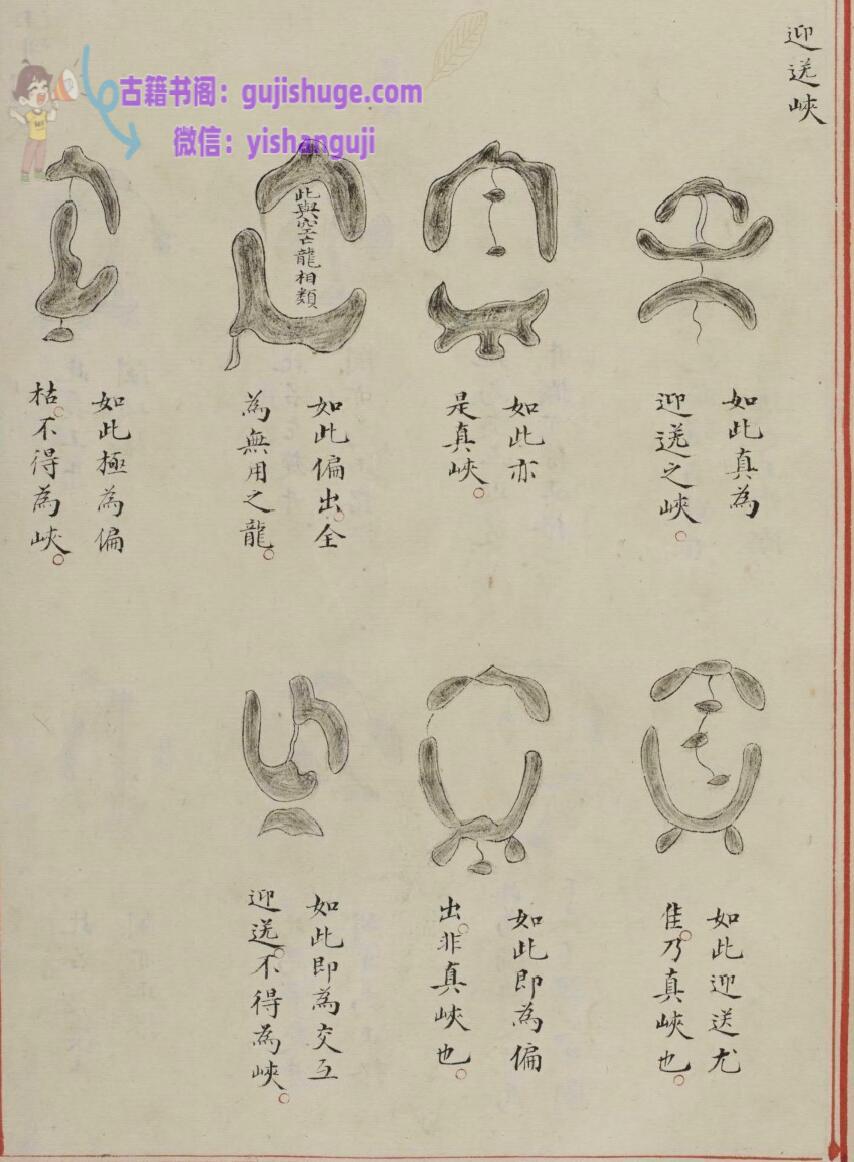 迎送峽
如此真為
迎送之峽。
如此亦
是真峽。
此與空亡龍相類
如此偏出。全
為無用之龍。
如此極為偏
枯。不得為峽。
如此迎送尤
佳。乃真峽也。
如此即為偏
出。非真峽也。
如此即為交互
迎送。不得為峽。
古籍书阁：gujishuge.com
微信：yishanguji